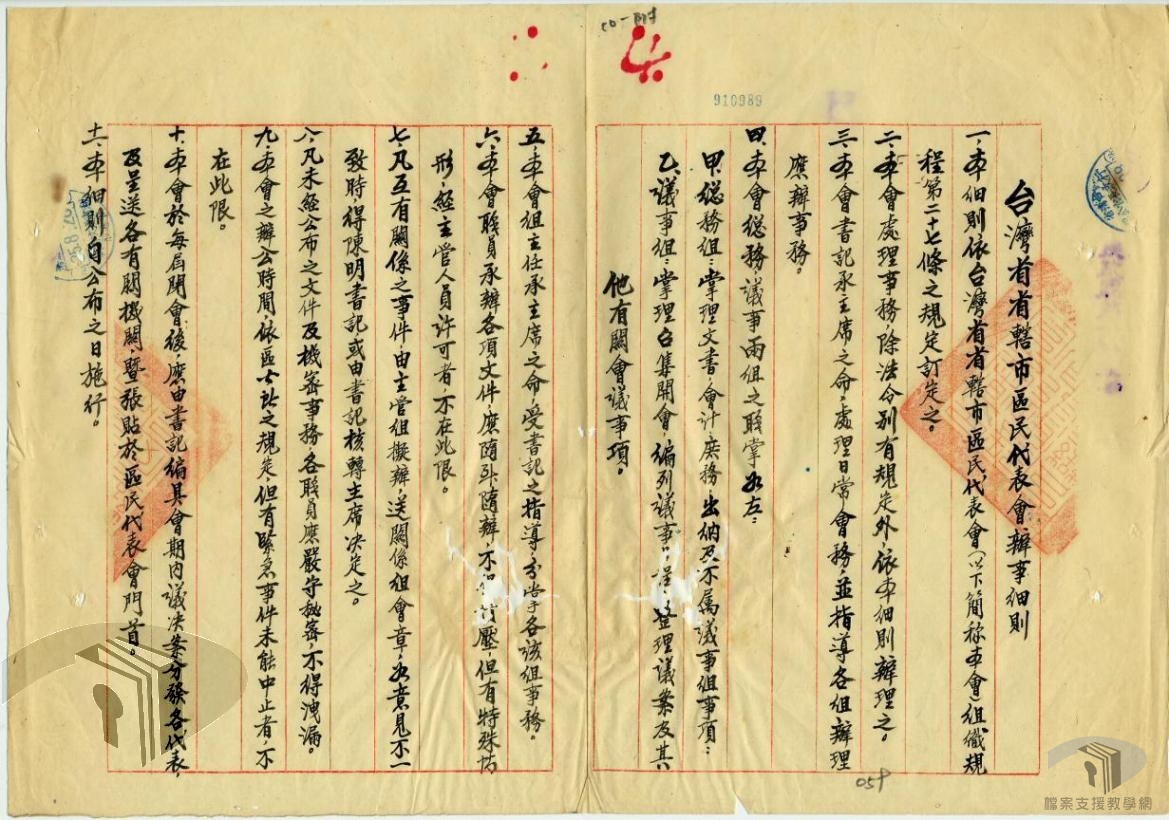 50-附
910989
台灣省省轄市區民代表會辦事細則
一、本細則依台灣省省轄市區民代表會(以下簡称本會)組織規
程第二十七條之規定訂定之。
二、本會處理事務，除法令別有規定外，依本細則辦理之。
三、本會書記承主席之命，處理日常會務，並指導各組辦理
應辦事務。
四、本會總務議事兩組之職掌如左：
甲、總務組：掌理文書，會計庶務，出納及不属議事組事項：
乙、議事組：掌理召集開會，編列議事 程，整理議案及其
他有關會議事項。
五、本會組主任承主席之命受書記之指導，分掌各該組事務。
六、本會職員承辦各項文件，應隨到隨辦，不 壓，但有特殊情
形，經主管人員許可者，不在此限。
七、凡互有關係之事件由主管組擬辦，送關係組會章，如意見不一
致時，得陳明書記或由書記核轉主席决定之。
八、凡未經公布之文件及機密事務，各職員應嚴守秘密，不得洩漏。
九、本會之辦公時間，依區公所之規定，但有緊急事件未能中止者，不
在此限。
十、本會於每屆開會後，應由書記編具會期内議决案分發各代表，
及呈送各有關機關，暨張貼於區民代表會門首。
十一、本細則自公布之日施行。
059
檔案支援教學網